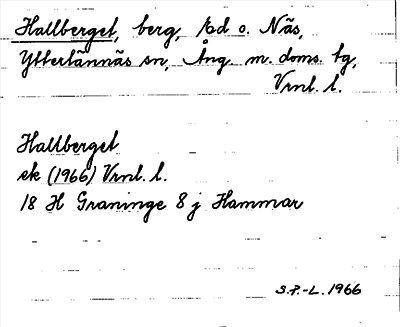 Hallberget, berg, Ed o. Näs,
Ytterlännäs sn, Ång. m. doms. tg,
Vrnl. l.
Hallberget
ek (1966) Vrnl. l.
18 H Graninge 8 j Hammar
S.P.-L. 1966